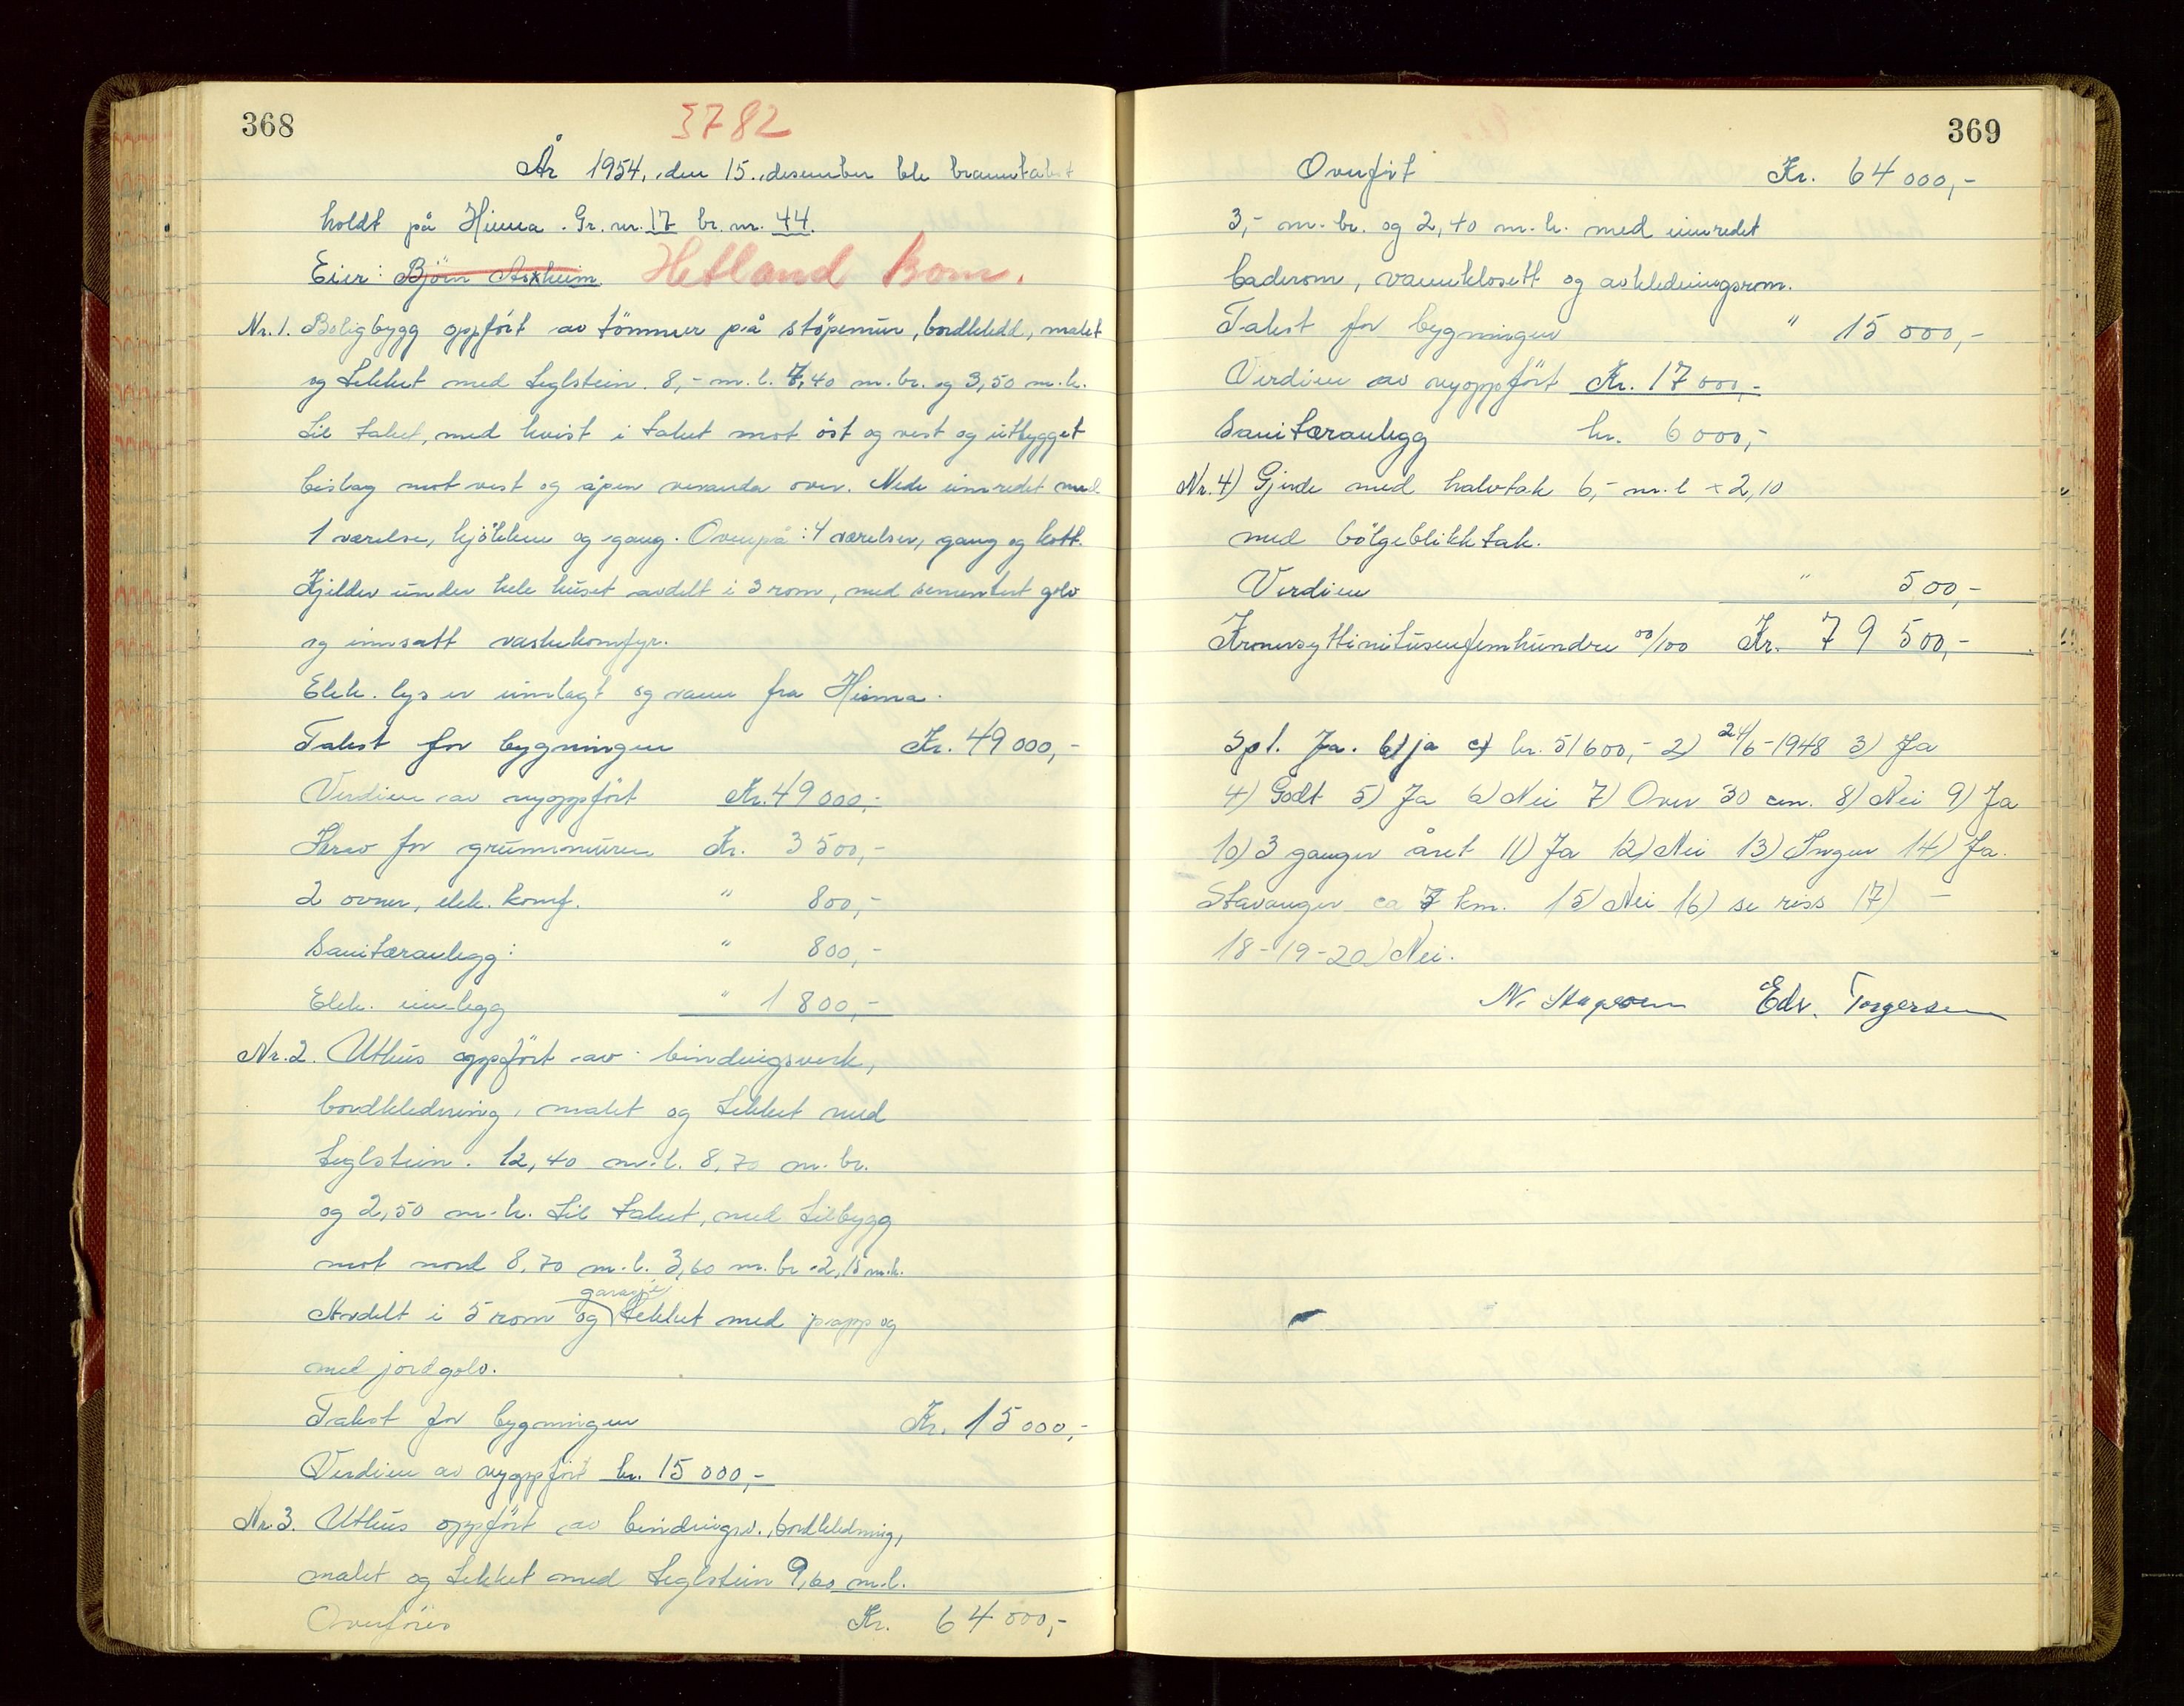 368
3782
År 1954, den 15. desember ble branntakst
holdt på Hinna. Gr. nr. 17 br. nr. 44.
Eier: Björn Askheim. Hetland Kom.
Nr. 1. Boligbygg oppfört av tömmer på stöpemur, bordkledd, malet
og tekket med teglstein. 8,- m. l. 7,40 m. br. og 3,50 m. h.
til taket, med kvist i taket mot öst og vest og utbygget
bislag mot vest og åpen veranda over. Nede innredet med
1 værelse, kjökken og gang. Ovenpå: 4 værelser, gang og kott.
Kjeller under hele huset avdelt i 3 rom, med sementert golv
og innsatt vaskekomfyr.
Elek. lys er innlagt og vann fra Hinna.
Takst for bygningen Kr. 49 000,-
Verdien av nyoppfört Kr. 49 000,-
Herav for grunnmuren Kr. 3 500,-
2 ovner, elek. komf. " 800,-
Sanitæranlegg: " 800,-
Elek. innlegg " 1 800,-
Nr. 2. Uthus oppfört av bindingsverk,
bordkledning, malet og tekket med
teglstein. 12,40 m. l. 8,70 m. br.
og 2,50 m. h. til taket, med tilbygg
mot nord 8,70 m. l. 3,60 m. br. 2,15 m. h.
garasje
Avdelt i 5 rom og tekket med papp og
med jordgolv.
Takst for bygningen Kr. 15 000,-
Verdien av nyoppfört kr. 15 000,-
Nr. 3. Uthus oppfört av bindingsv., bordkledning,
malet og tekket med teglstein 9,60 m. l.
Overföres Kr. 64 000,-
369
Overfört Kr. 64 000,-
3,- m. br. og 2,40 m. h. med innredet
baderom, vannklosett og avkledningsrom.
Takst for bygningen " 15 000,-
Verdien av nyoppfört Kr. 17 000,-
Sanitæranlegg kr. 6 000,-
Nr. 4) Gjerde med halvtak 6,- m. l × 2,10
med bölgeblikktak.
Verdien " 500,-
Kronersyttinitusenfemhundre 00/100 Kr. 79 500,-
Sp 1. Ja. b) ja c) kr. 51600,- 2) 24/6-1948 3) Ja
4) Godt 5) Ja 6) Nei 7) Over 30 cm. 8) Nei 9) Ja
10) 3 ganger året 11) Ja 12) Nei 13) Ingen 14) Ja.
Stavanger ca 7 km. 15) Nei 16) se riss 17) -
18-19-20) Nei.
N. Edv. Torgersen